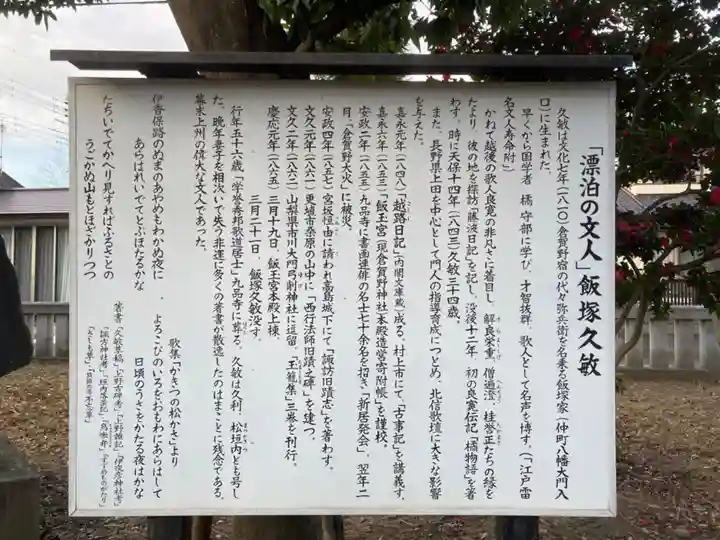 「漂泊の文人」飯塚久敏
久敏は文化七年(一八一〇)倉賀野宿の代々弥兵衛を名乗る飯塚家(仲町八幡大門入
口)に生まれた。
早くから国学者 橘 守部に学び、才智抜群、歌人として名声を博す。(「江戸雷
名文人寿命附」)
かねて越後の歌人良寛の非凡さに着目し、解良栄重、僧遍澄、桂誉正たちの縁を
たより、彼の地を探訪「藤波日記」を記し、没後十二年、初の良寛伝記「橘物語」を著
わす。時に天保十四年(一八四三)久敏三十四歳。
また、長野県上田を中心として門人の指導育成につとめ、北信歌壇に大きな影響
を与えた。
嘉永元年(一八四八)「越路日記」(内閣文庫蔵)成る。村上市にて、「古事記」を講義す。
嘉永六年(一八五三)「飯玉宮(現倉賀野神社)本殿造営寄附帳」を謹校。
安政二年(一八五五)九品寺に書画連俳の名士七十余名を招き「新居発会」、翌年二
月、「倉賀野大火」に被災。
安政四年(一八五七)宮坂恒由に請われ高島城下にて「諏訪旧蹟志」を著わす。
文久元年(一八六一)更埴市桑原の山中に「西行法師旧蹟之碑」を建つ。
文久二年(一八六二)山梨県市川大門弓削神社に逗留、「玉籠集」三巻を刊行。
慶応元年(一八六五)三月十九日、飯玉宮本殿上棟。
三月二十一日、飯塚久敏没す。
行年五十六歳「学誉秀邦歌道居士」九品寺に葬る。久敏は久利、松垣内とも号し
た。晩年妻子を相次いで失う非運に多くの著書が散逸したのはまことに残念である。
幕末上州の偉大な文人であった。
歌集「かきつの松かさ」より
伊香保路のぬまのあやめもわかぬ夜に よろこびのいろをおもわにあらはして
あらはれいでてとぶほたるかな 日頃のうさをかたる夜はかな
たちいでてかへり見すればふるさとの
うごかぬ山もとほざかりつつ
著書「久敏草稿」「上野古碑考」「上野雑記」「伊夜彦神社考」
「諏方神社考」「垣内落葉記」